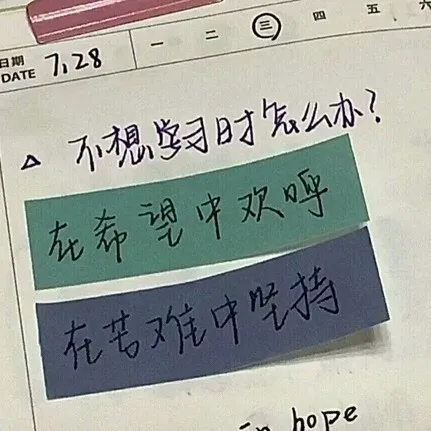 一 二 三 四 五 六
日期
DATE 7.28
△ 不想学习时怎么办?
在希望中欢呼
在苦难中坚持
in hope